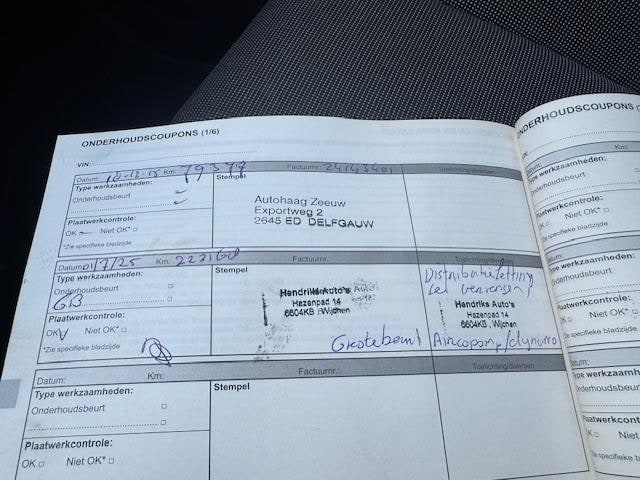 ONDERHOUDSCOUPONS (1/6)
VIN:
Datum: 18-12-15 Km: 79377 Factuurnr.: 24143401 Toelichting/diversen
Type werkzaamheden: Stempel
Onderhoudsbeurt
Autohaag Zeeuw
Exportweg 2
2645 ED DELFGAUW
Plaatwerkcontrole:
OK Niet OK*
*Zie specifieke bladzijde
Datum: 01/7/25 Km: Factuurnr.: Toelichting/diversen
Type werkzaamheden: Stempel
Onderhoudsbeurt
GB
Hendriks Auto's
Hazenpad 14
6604KB, Wijchen
Grotebeurt
Distributieketting
Hendriks Auto's
Hazenpad 14
6604KB, Wijchen
Aircopomp/dynamo
Plaatwerkcontrole:
OK Niet OK*
*Zie specifieke bladzijde
Datum: Km: Factuurnr.: Toelichting/diversen
Type werkzaamheden: Stempel
Onderhoudsbeurt
Plaatwerkcontrole:
OK Niet OK*
ONDERHOUDSCOUPONS
Datum:
Type werkzaamheden:
Onderhoudsbeurt
Plaatwerkcontrole:
OK Niet OK*
*Zie specifieke bladzijde
Datum:
Type werkzaamheden:
Onderhoudsbeurt
Plaatwerkcontrole:
OK Niet OK*
*Zie specifieke bladzijde
Datum:
Type werkzaamheden:
Onderhoudsbeurt
Plaatwerkcontrole:
OK Niet OK*